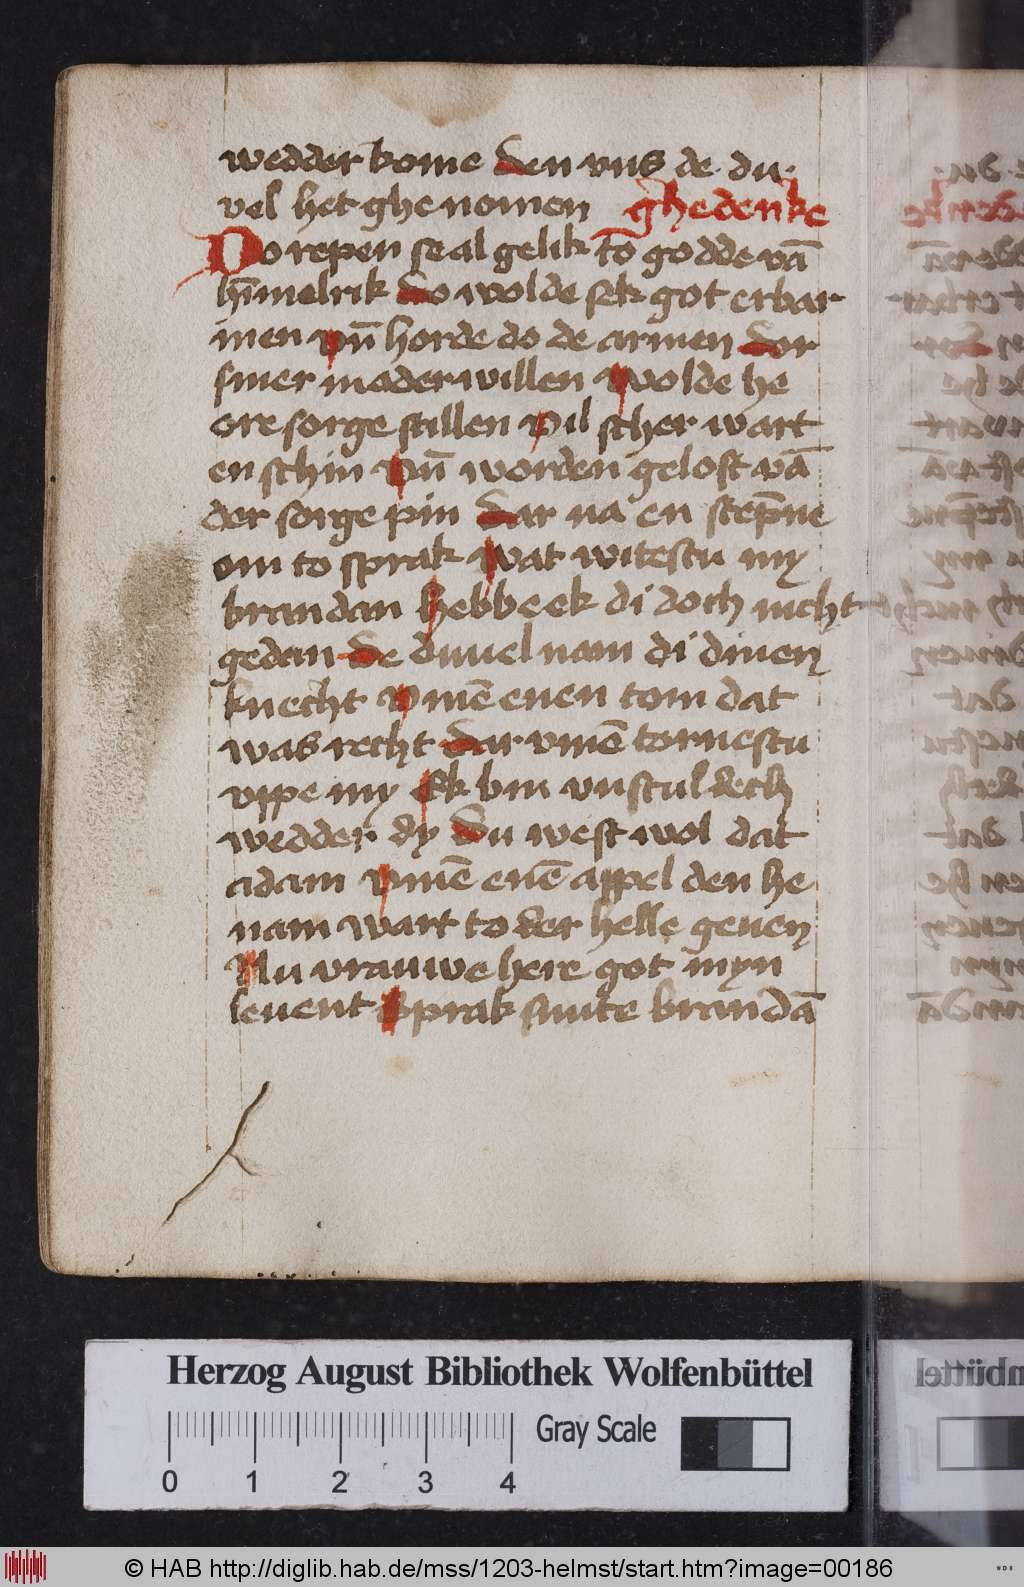 wedder kome den vns de du·
vel het ghe nomen ghedenke
Do repen se al gelik to godde vā
hīmelrik do wolde sek got erbar
men vn̄ horde do de armen dor
siner moder willen wolde he
ore sorge stillen vil scher wart
en schin vn̄ worden gelost vā
der sorge pin dar na en stēpne
om to sprak wat witestu my
brandan hebbe ek di doch nicht
gedan de duuel nam di dinen
knecht vmē enen tom dat
was recht dar vmē tornestu
vppe my Ek bin vnsculdech
wedder dy Du west wol dat
adam vmē enē appel den he
nam wart to der helle geuen
Nu vrauwe here got myn
leuent Sprak sunte brandā
Herzog August Bibliothek Wolfenbüttel
0 1 2 3 4
Gray Scale
© HAB http://diglib.hab.de/mss/1203-helmst/start.htm?image=00186